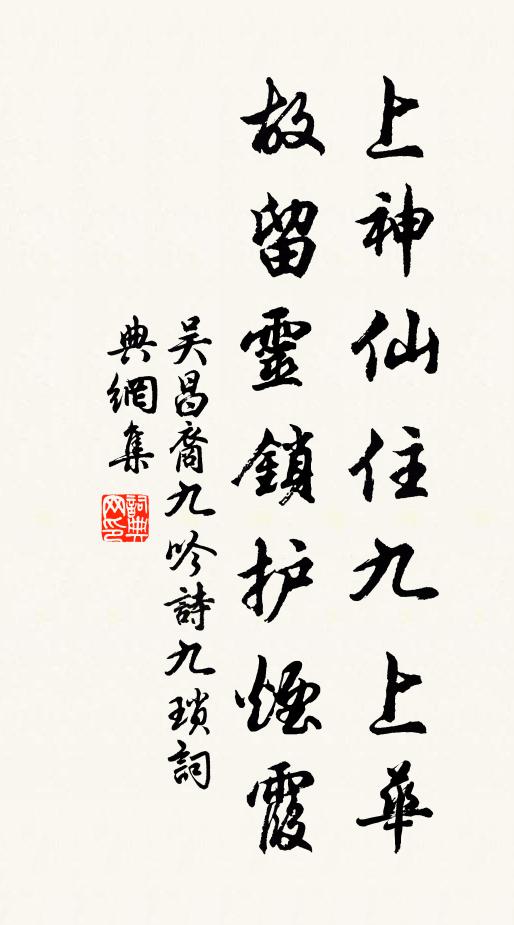 上神仙住九上華
故留靈鎖护煙霞
吴昌裔九吟詩九瑣詞
典網集
詞典网印